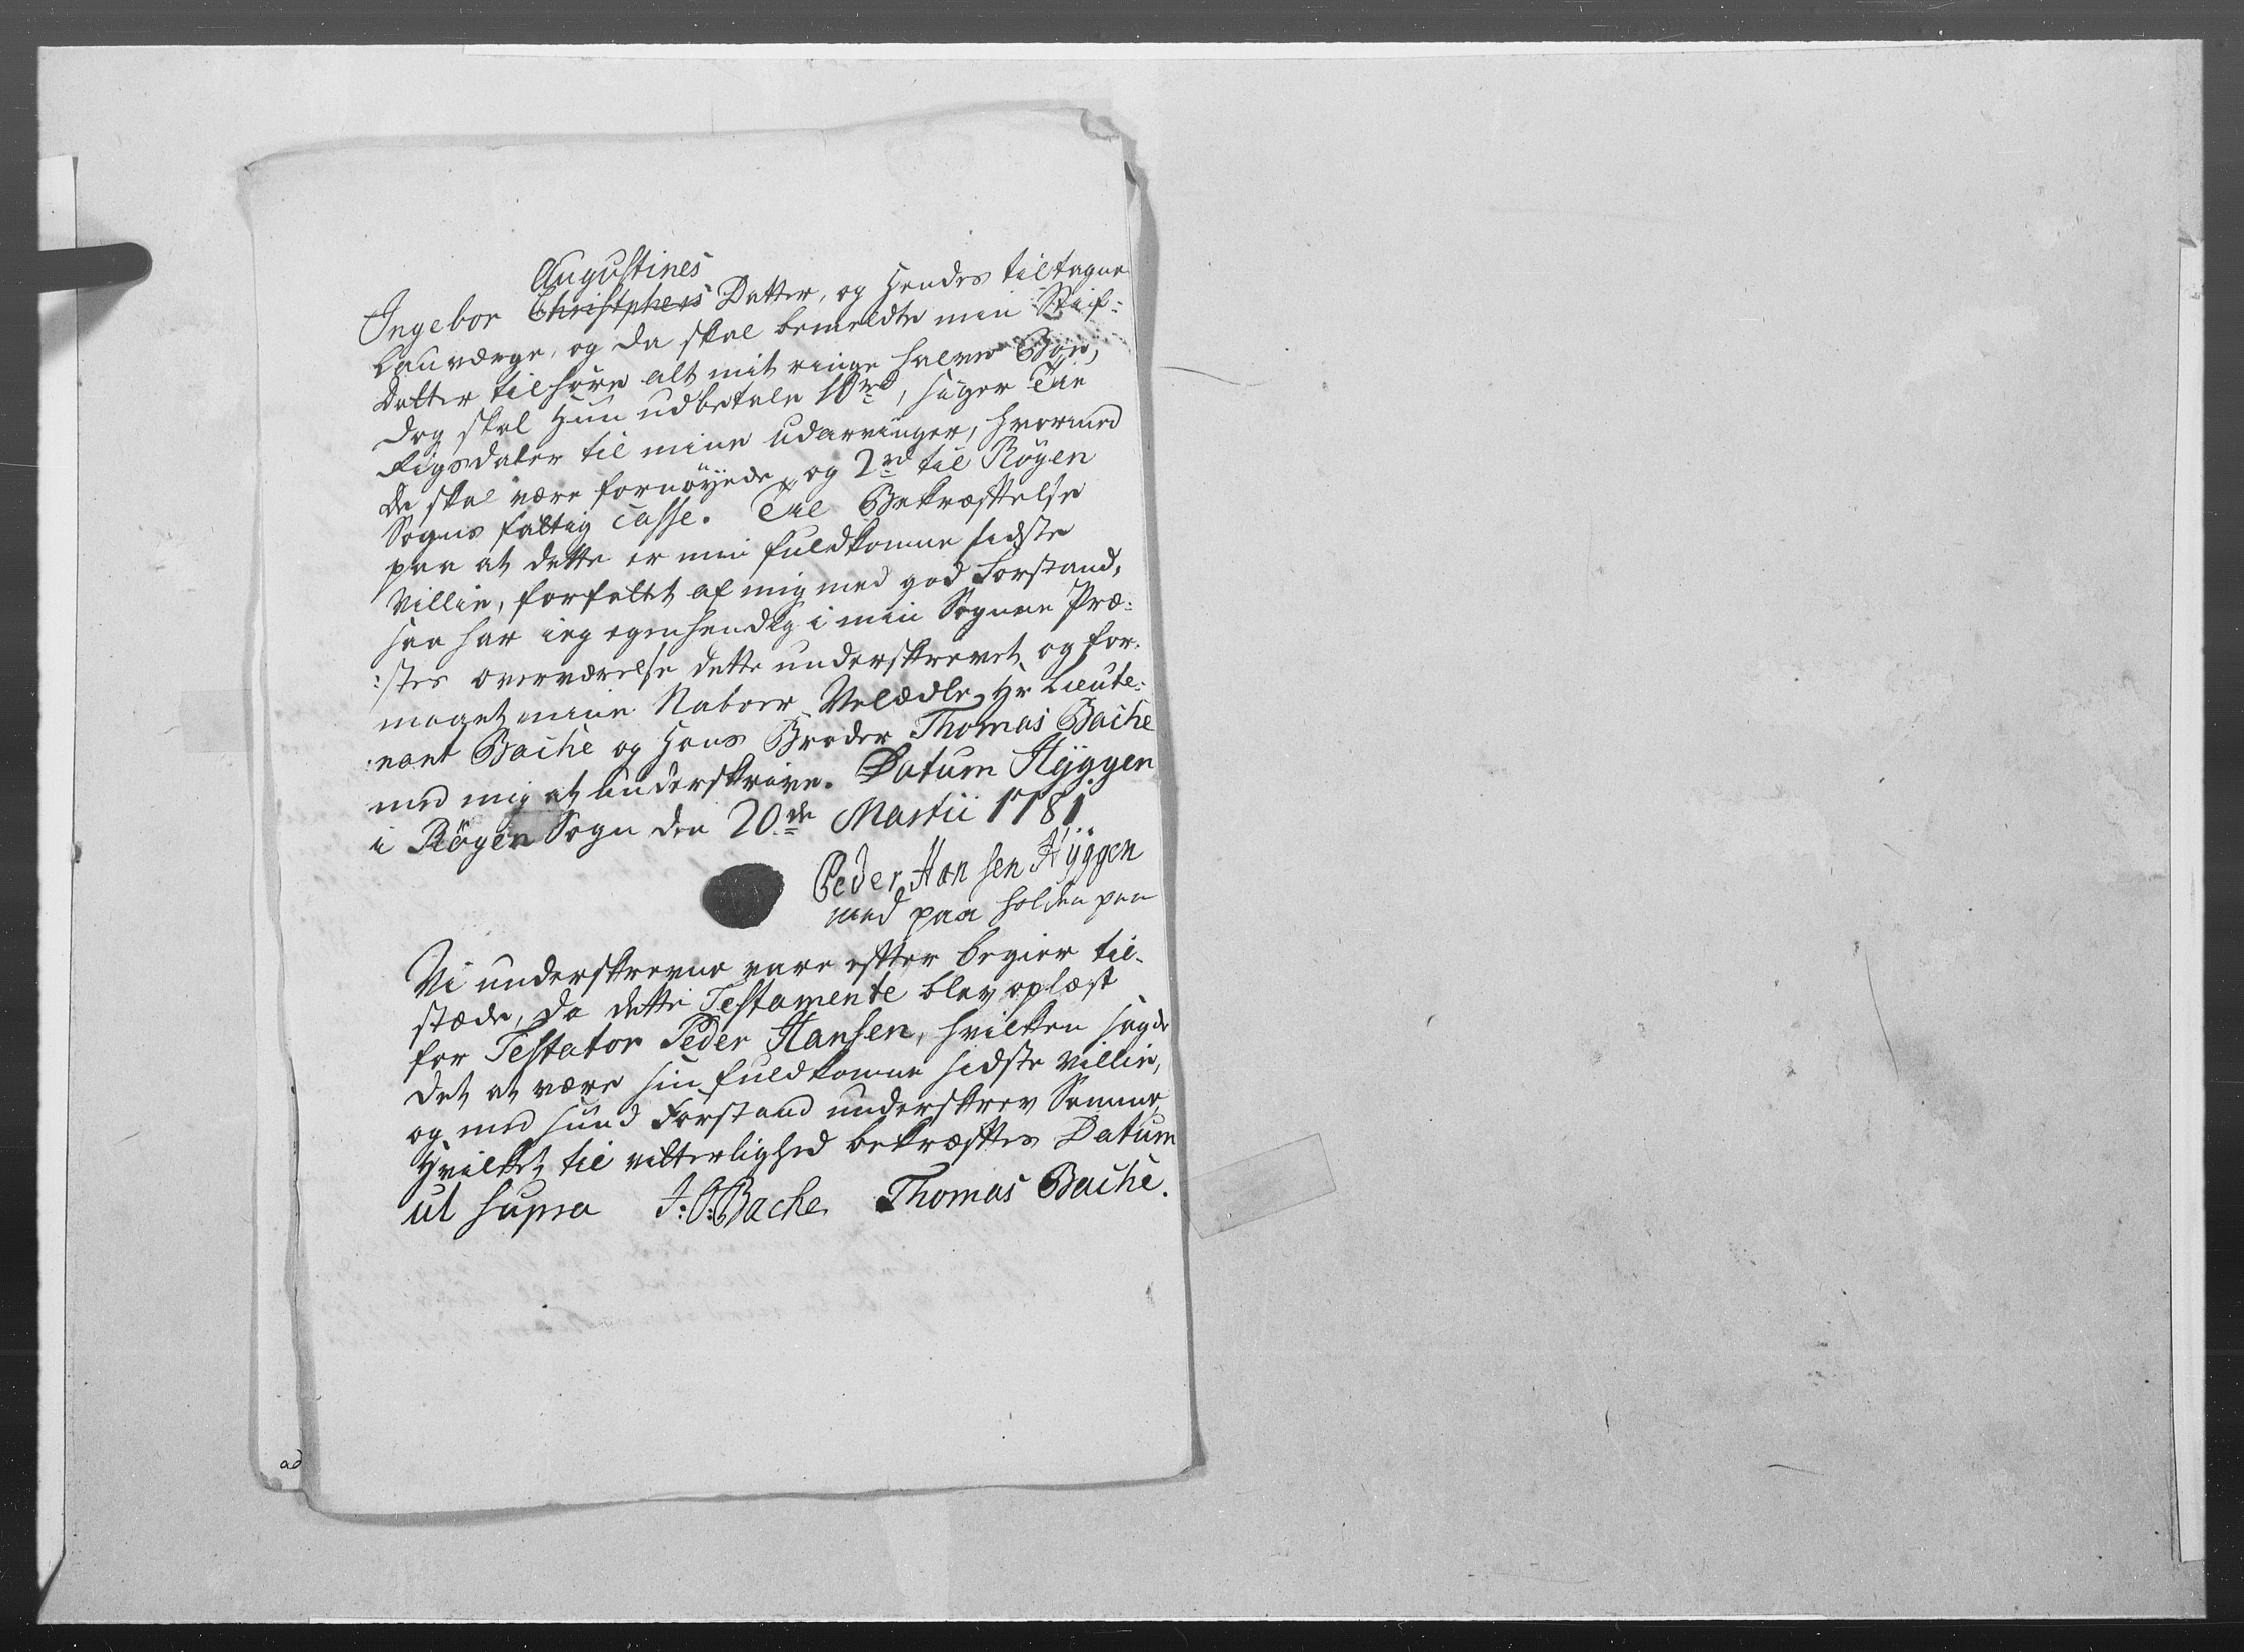 Augustines
Ingebor Christphers Datter, og Hendes tiltagne
Lauværge, og da skal bemeldte min Stif:
datter tilhöre alt mit ringe halve Boe,
dog skal Hun udbetale 10 rd, siger Tie
Rigsdaler til mine udarvinger, hvormed
de skal være fornöyede, og 2 rd til Röyen
Sogns fattig Casse. Til Bekræftelse
paa at dette er min fuldkomne sidste
Villie, forfattet af mig med god Forstand,
saa har ieg egenhendig i min Sogne Præ:
:stes overværelse dette underskrevet, og for:
maaet mine Naboer Velædle Hr Lieute:
:nant Bache og Hans Broder Thomas Bache
med mig at underskrive. Datum Hÿggen
i Röyen Sogn den 20de Martii 1781.
Peder Hansen Hÿggen
med paa holden pen
Vi underskrevne vare efter begier til-
stæde, da dette Testamente blev oplæst
for Testator Peder Hansen, hvilken sagde
det at være sin fuldkomne sidste villie,
og med sund Forstand underskrev Samme,
Hvilket til vitterlighed bekræftes Datum
ut supra J: O: Bache Thomas Bache.
ad